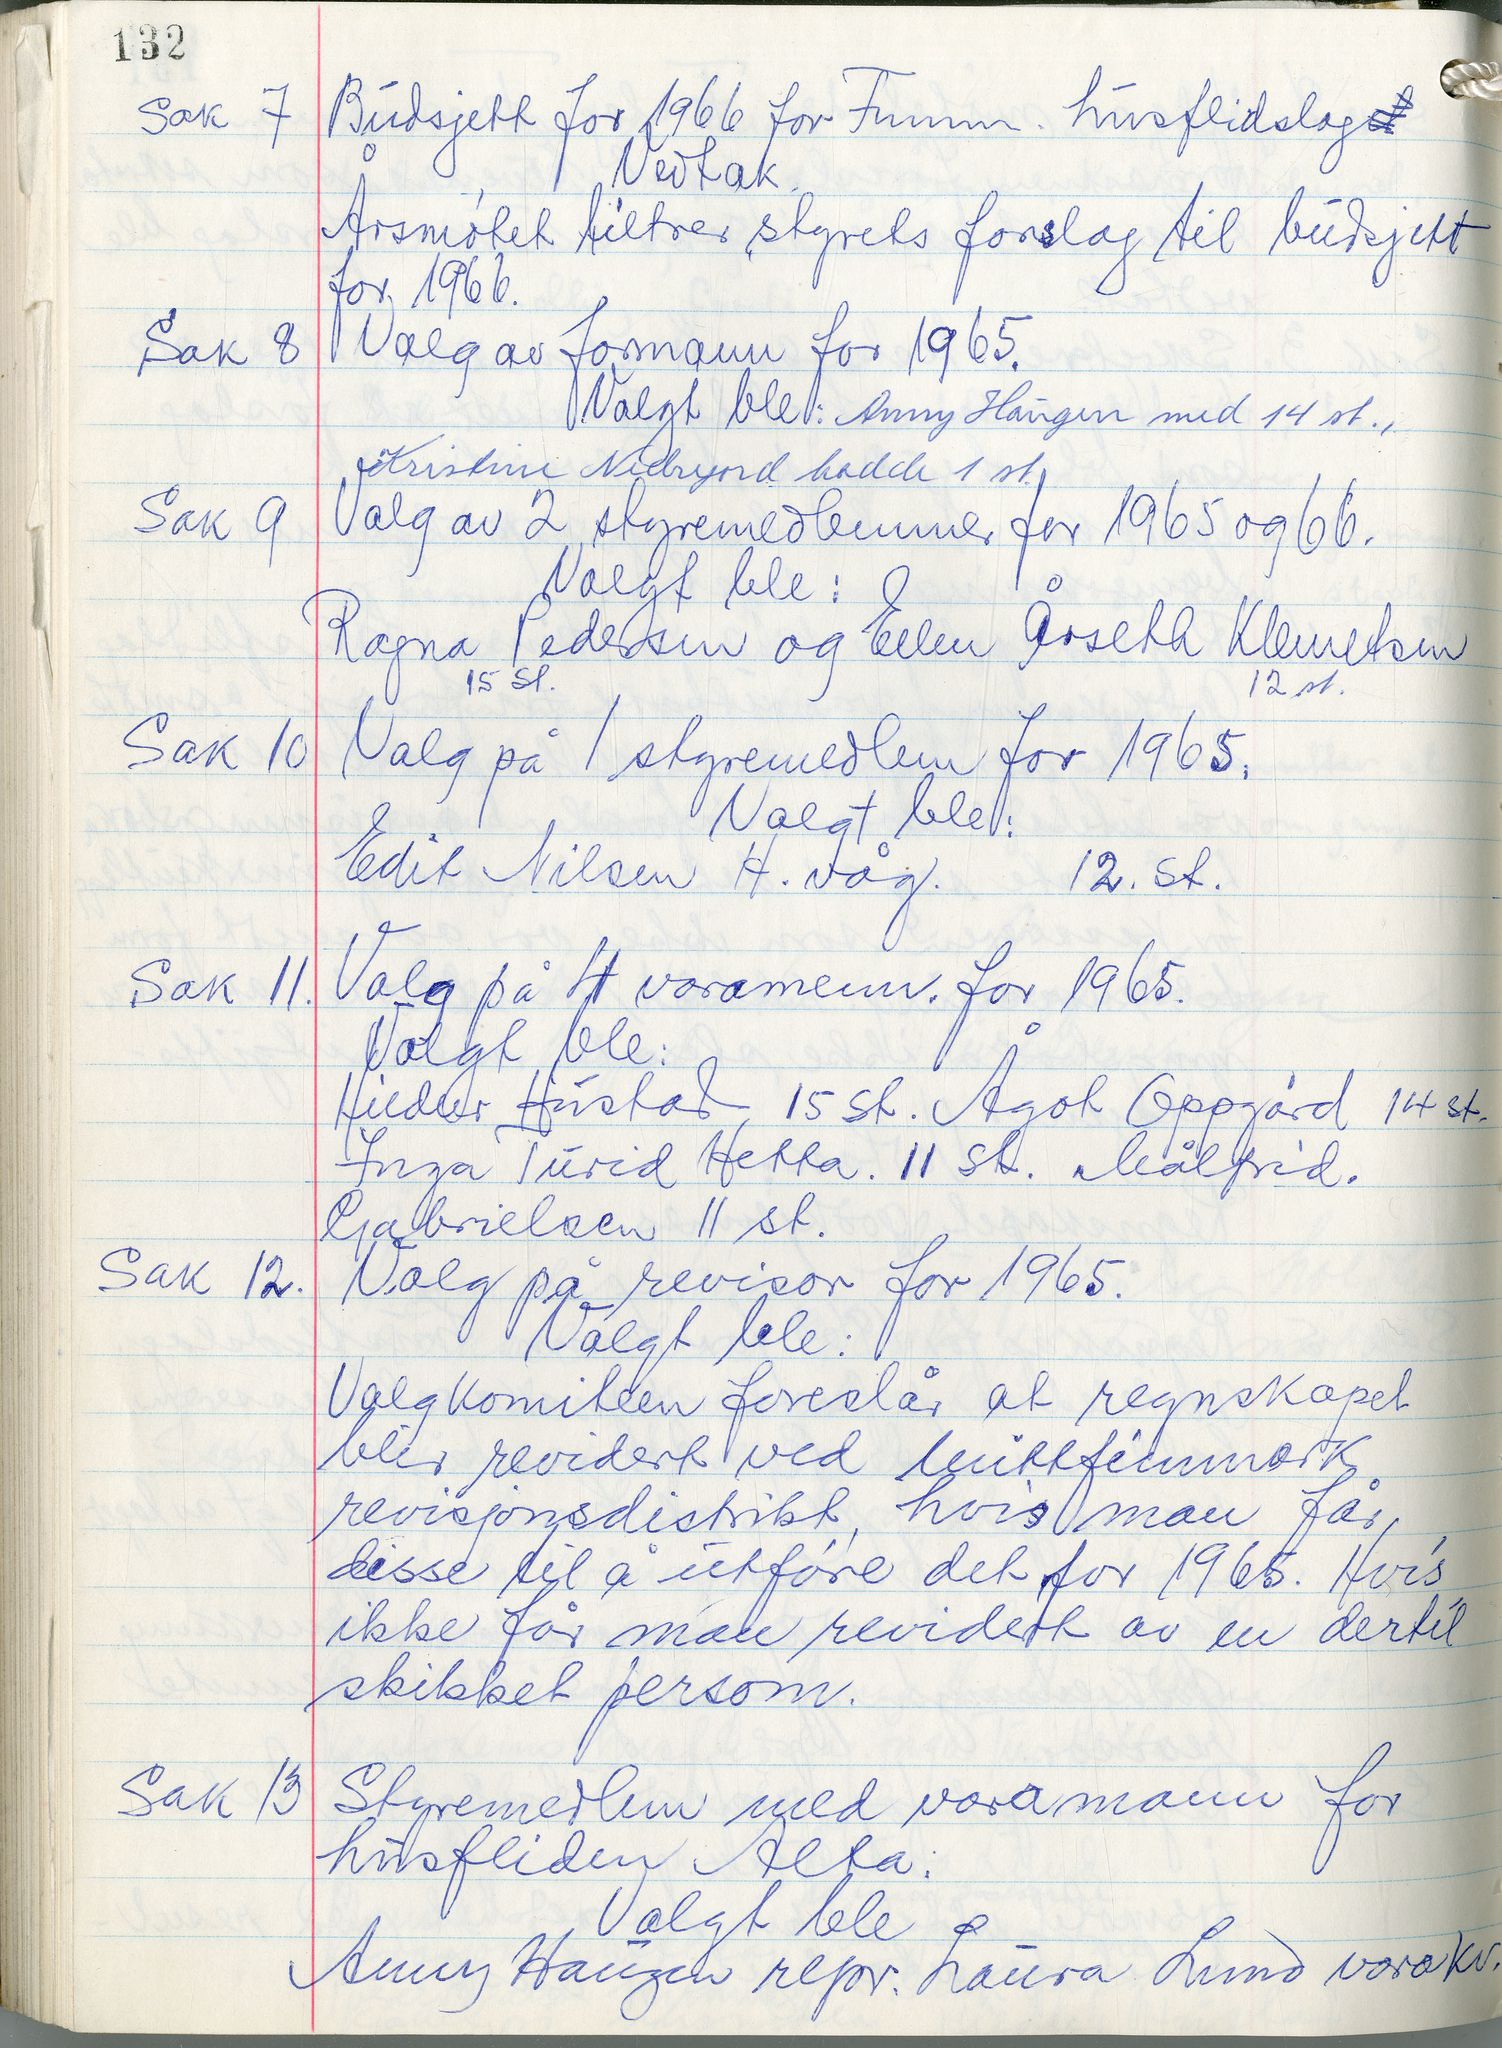 132
Sak 7 Budsjett for 1966 for Finnm. husflidslag
Vedtak
Årsmøtet tiltrer styrets forslag til budsjett
for 1966.
Sak 8 Valg av formann for 1965.
Valgt ble: Anny Haugen med 14 st.,
Kristine hadde 1 st.
Sak 9 Valg av 2 styremedlemmer for 1965 og 66.
Valgt ble:
Ragna Pedersen og Ellen Årseth Klemetsen
15 st. 12 st.
Sak 10 Valg på 1 styremedlem for 1965.
Valgt ble:
Edit Nilsen H. våg. 12. st.
Sak 11. Valg på 4 varamenn. for 1965.
Valgt ble:
Hustad 15 st. Ågot Oppgård 14 st.
Inga Turid Hetta. 11 st. Målfrid.
Gabrielsen 11 st.
Sak 12. Valg på revisor for 1965.
Valgt ble:
Valgkomiteen foreslår at regnskapet
blir revidert ved Mittfinnmark
revisjonsdistrikt, hvis man får
disse til å utføre det for 1965. Hvis
ikke får man revidert av en dertil
skikket person.
Sak 13 Styremedlem med varamann for
husfliden Alta:
Valgt ble
Anny Haugen repr. Laura Lund varakv.